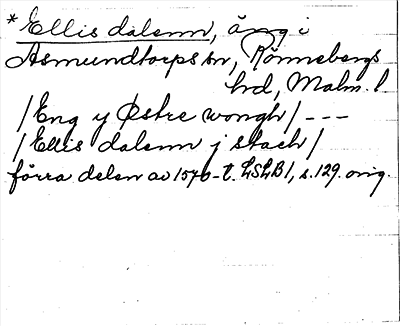 * Ellis dalenn, äng i
Asmundtorps sn, Rönnebergs
hd, Malm. l.
/Eng y Østre wongh/ ---
/Ellis dalenn j stach/
förra delen av 1570-t. LSLB1, s. 129. orig.